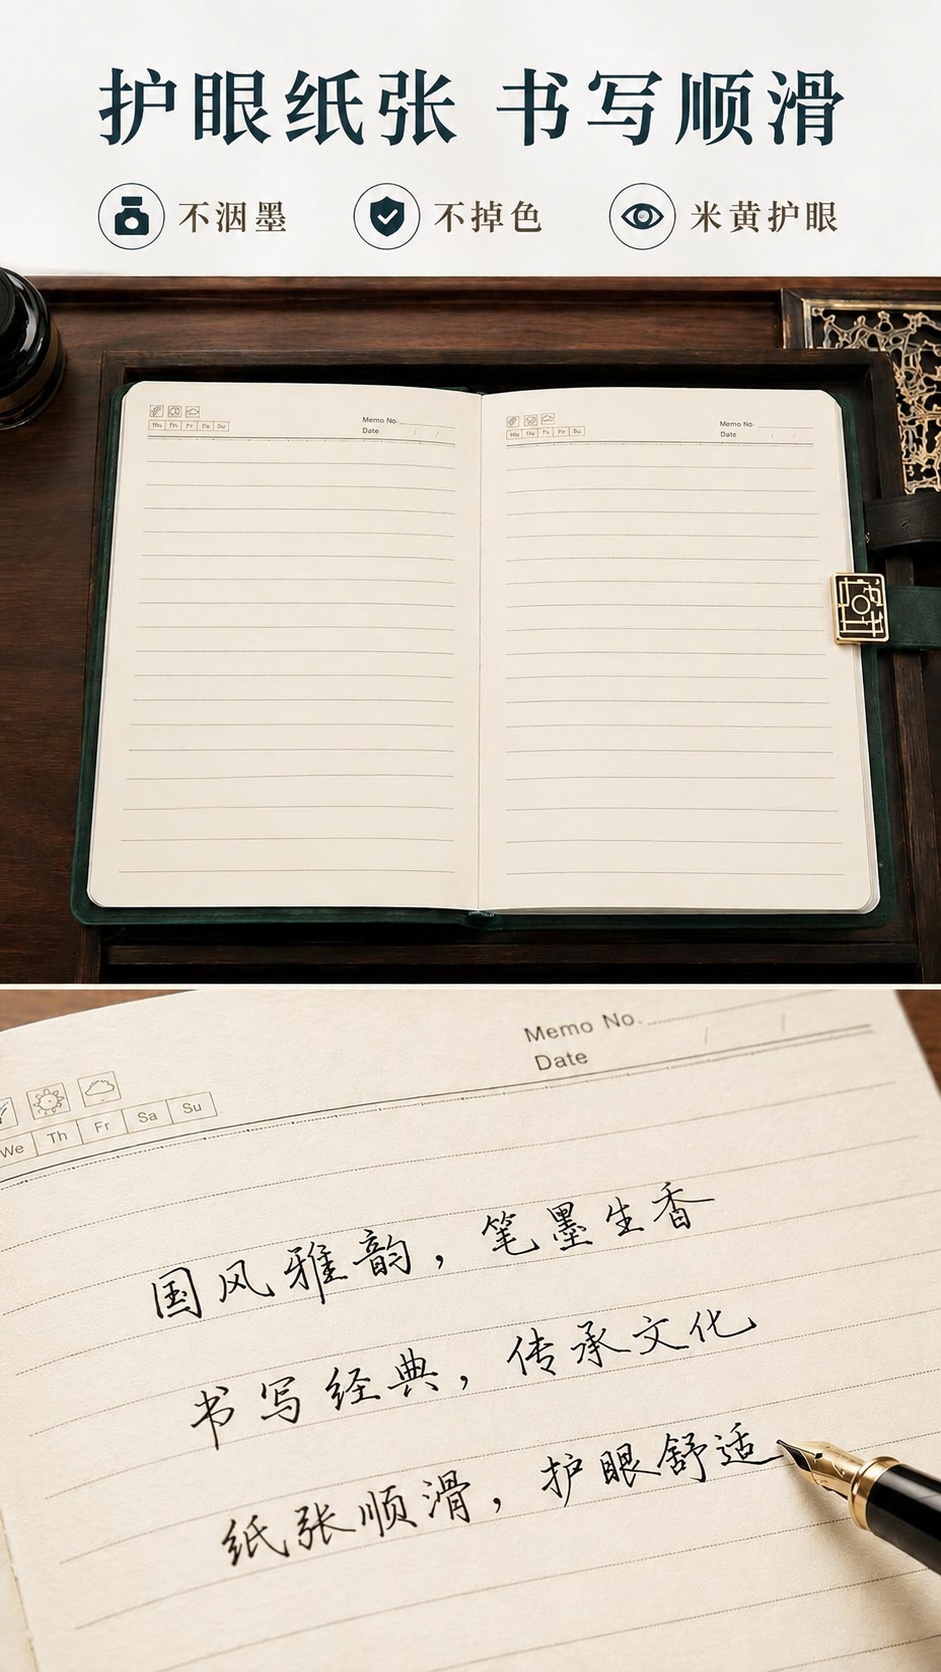 护眼纸张 书写顺滑
不洇墨 不掉色 米黄护眼
Memo No.
Date / /
Th Fr Sa Su
Memo No.
Date / /
Th Fr Sa Su
Memo No.
Date / /
We Th Fr Sa Su
国风雅韵，笔墨生香
书写经典，传承文化
纸张顺滑，护眼舒适